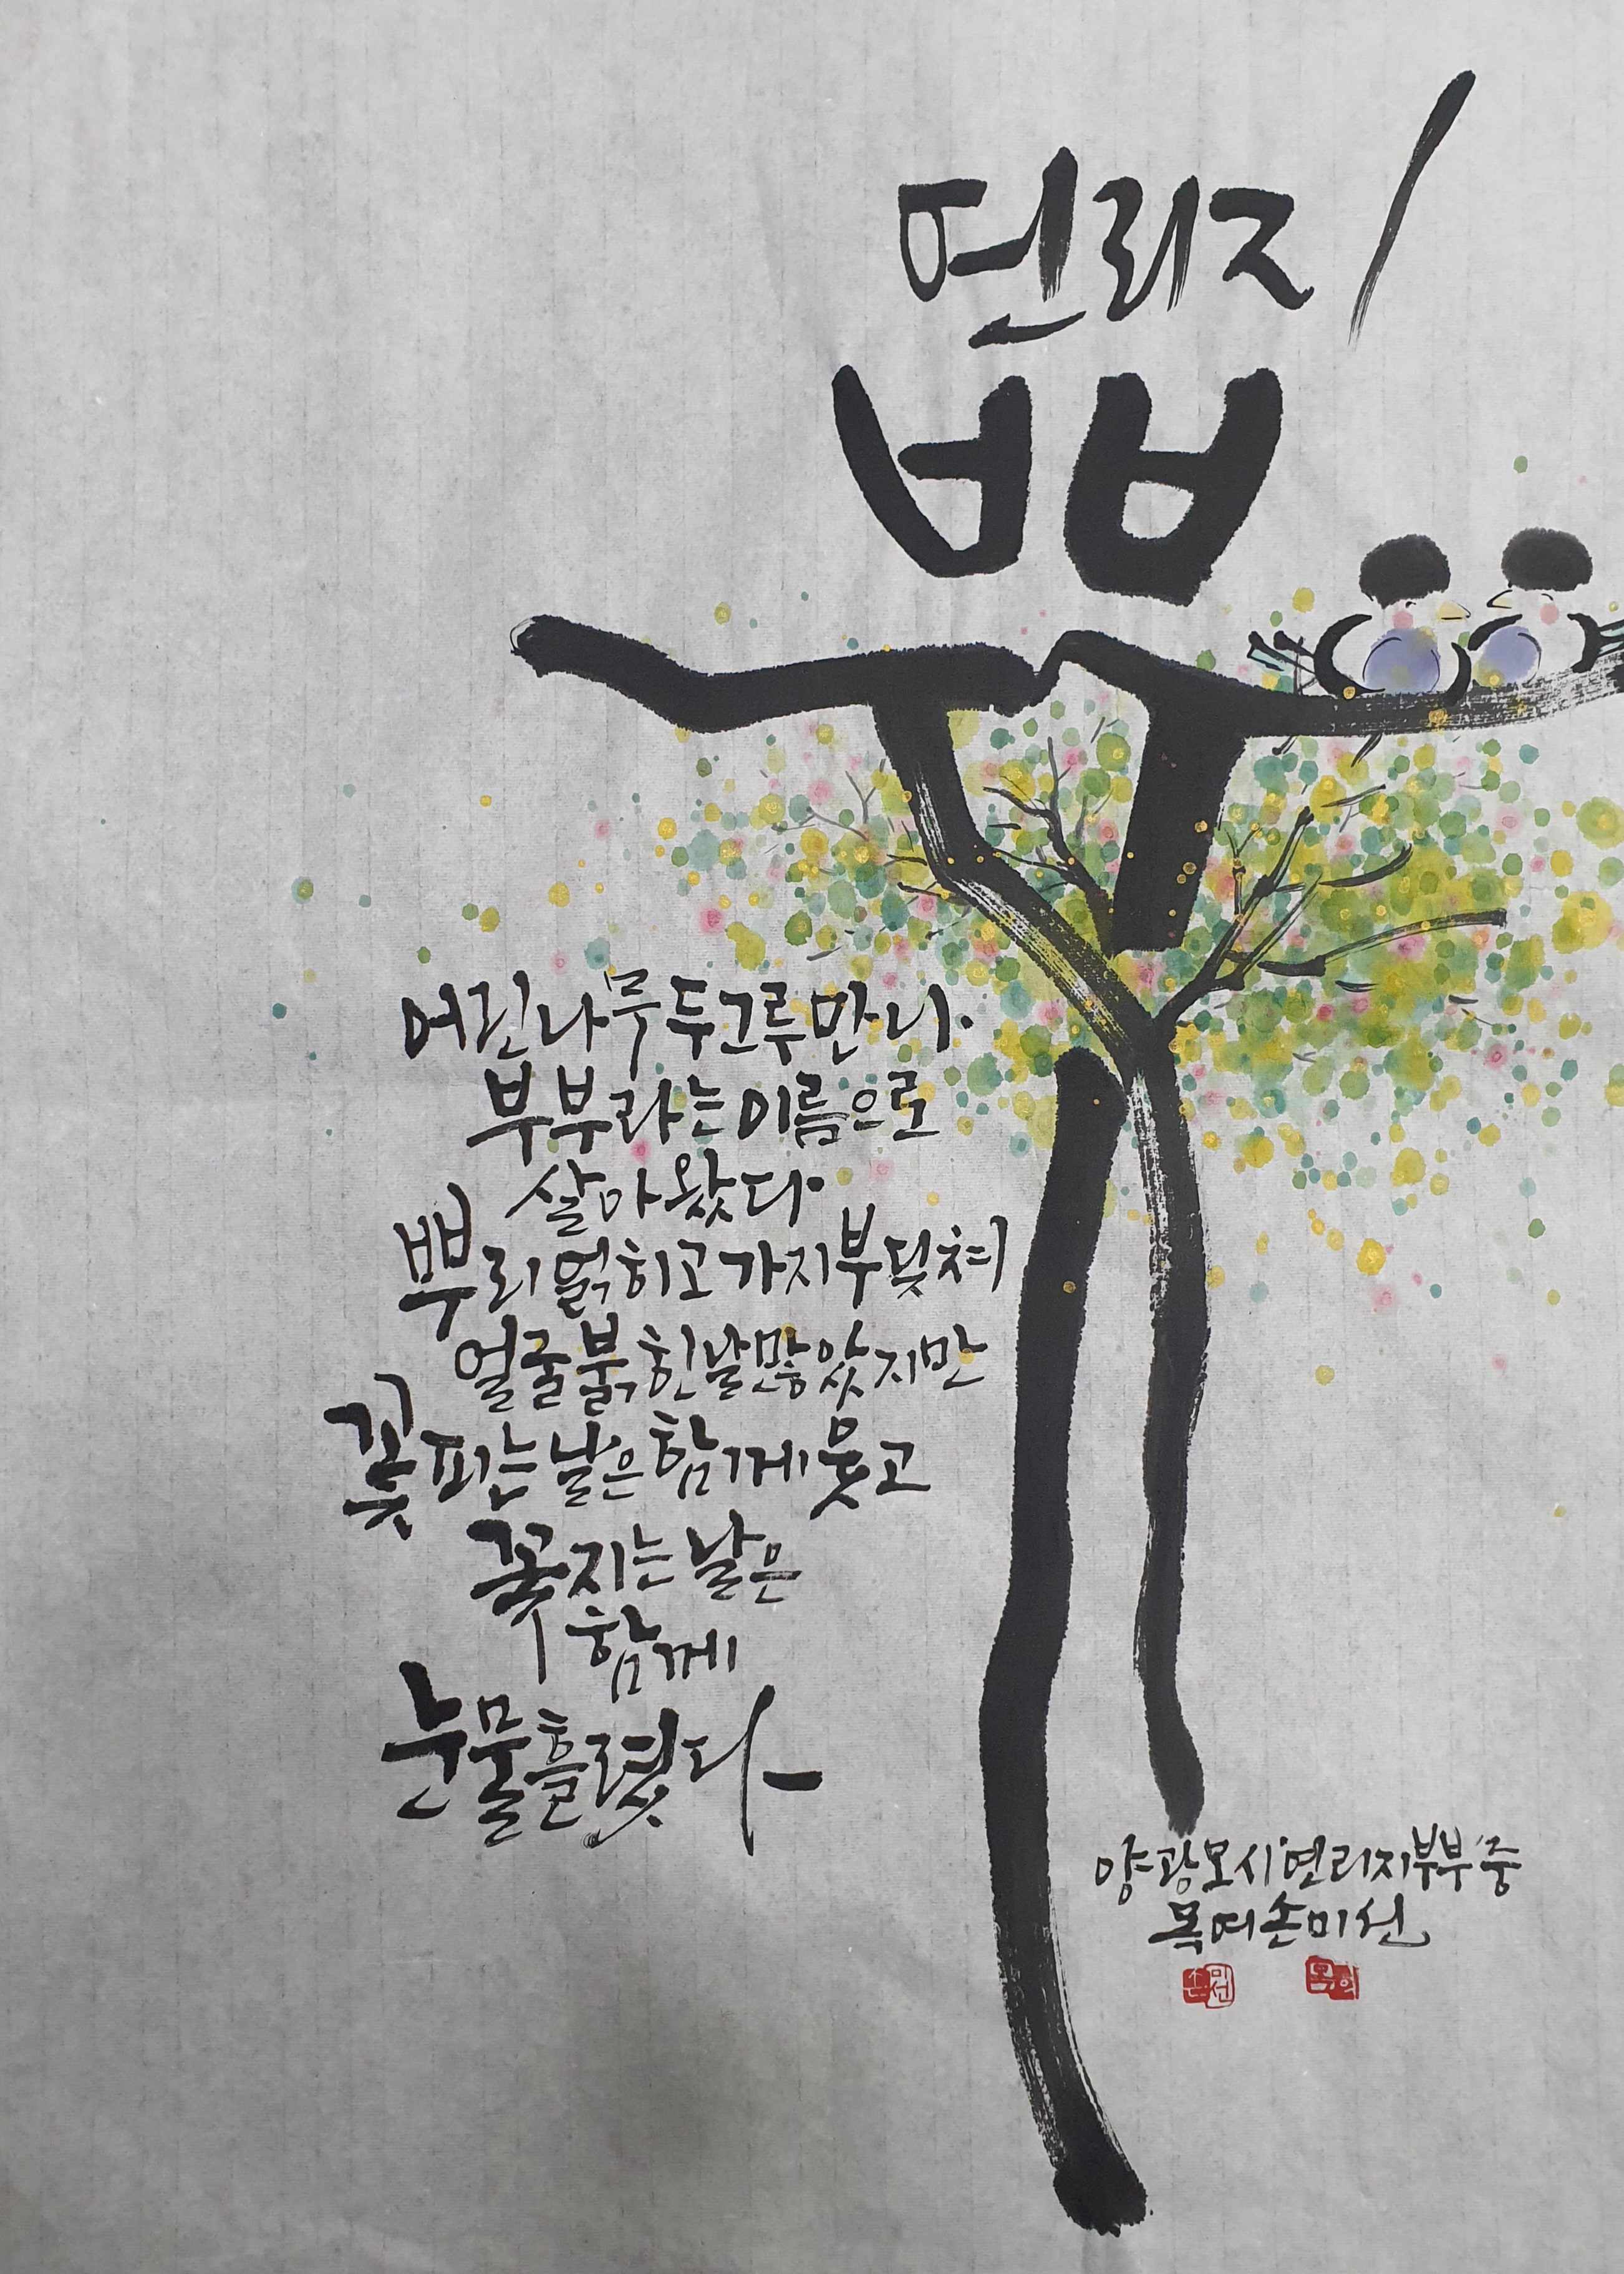 연리지
부부
어린나무두그루만나
부부라는이름으로
살아왔다
뿌리얽히고가지부딪쳐
얼굴붉힌날많았지만
꽃피는날은함께웃고
꽃지는날은
함께
눈물흘렸다
양광모시'연리지부부'중
목여손미선
손미선